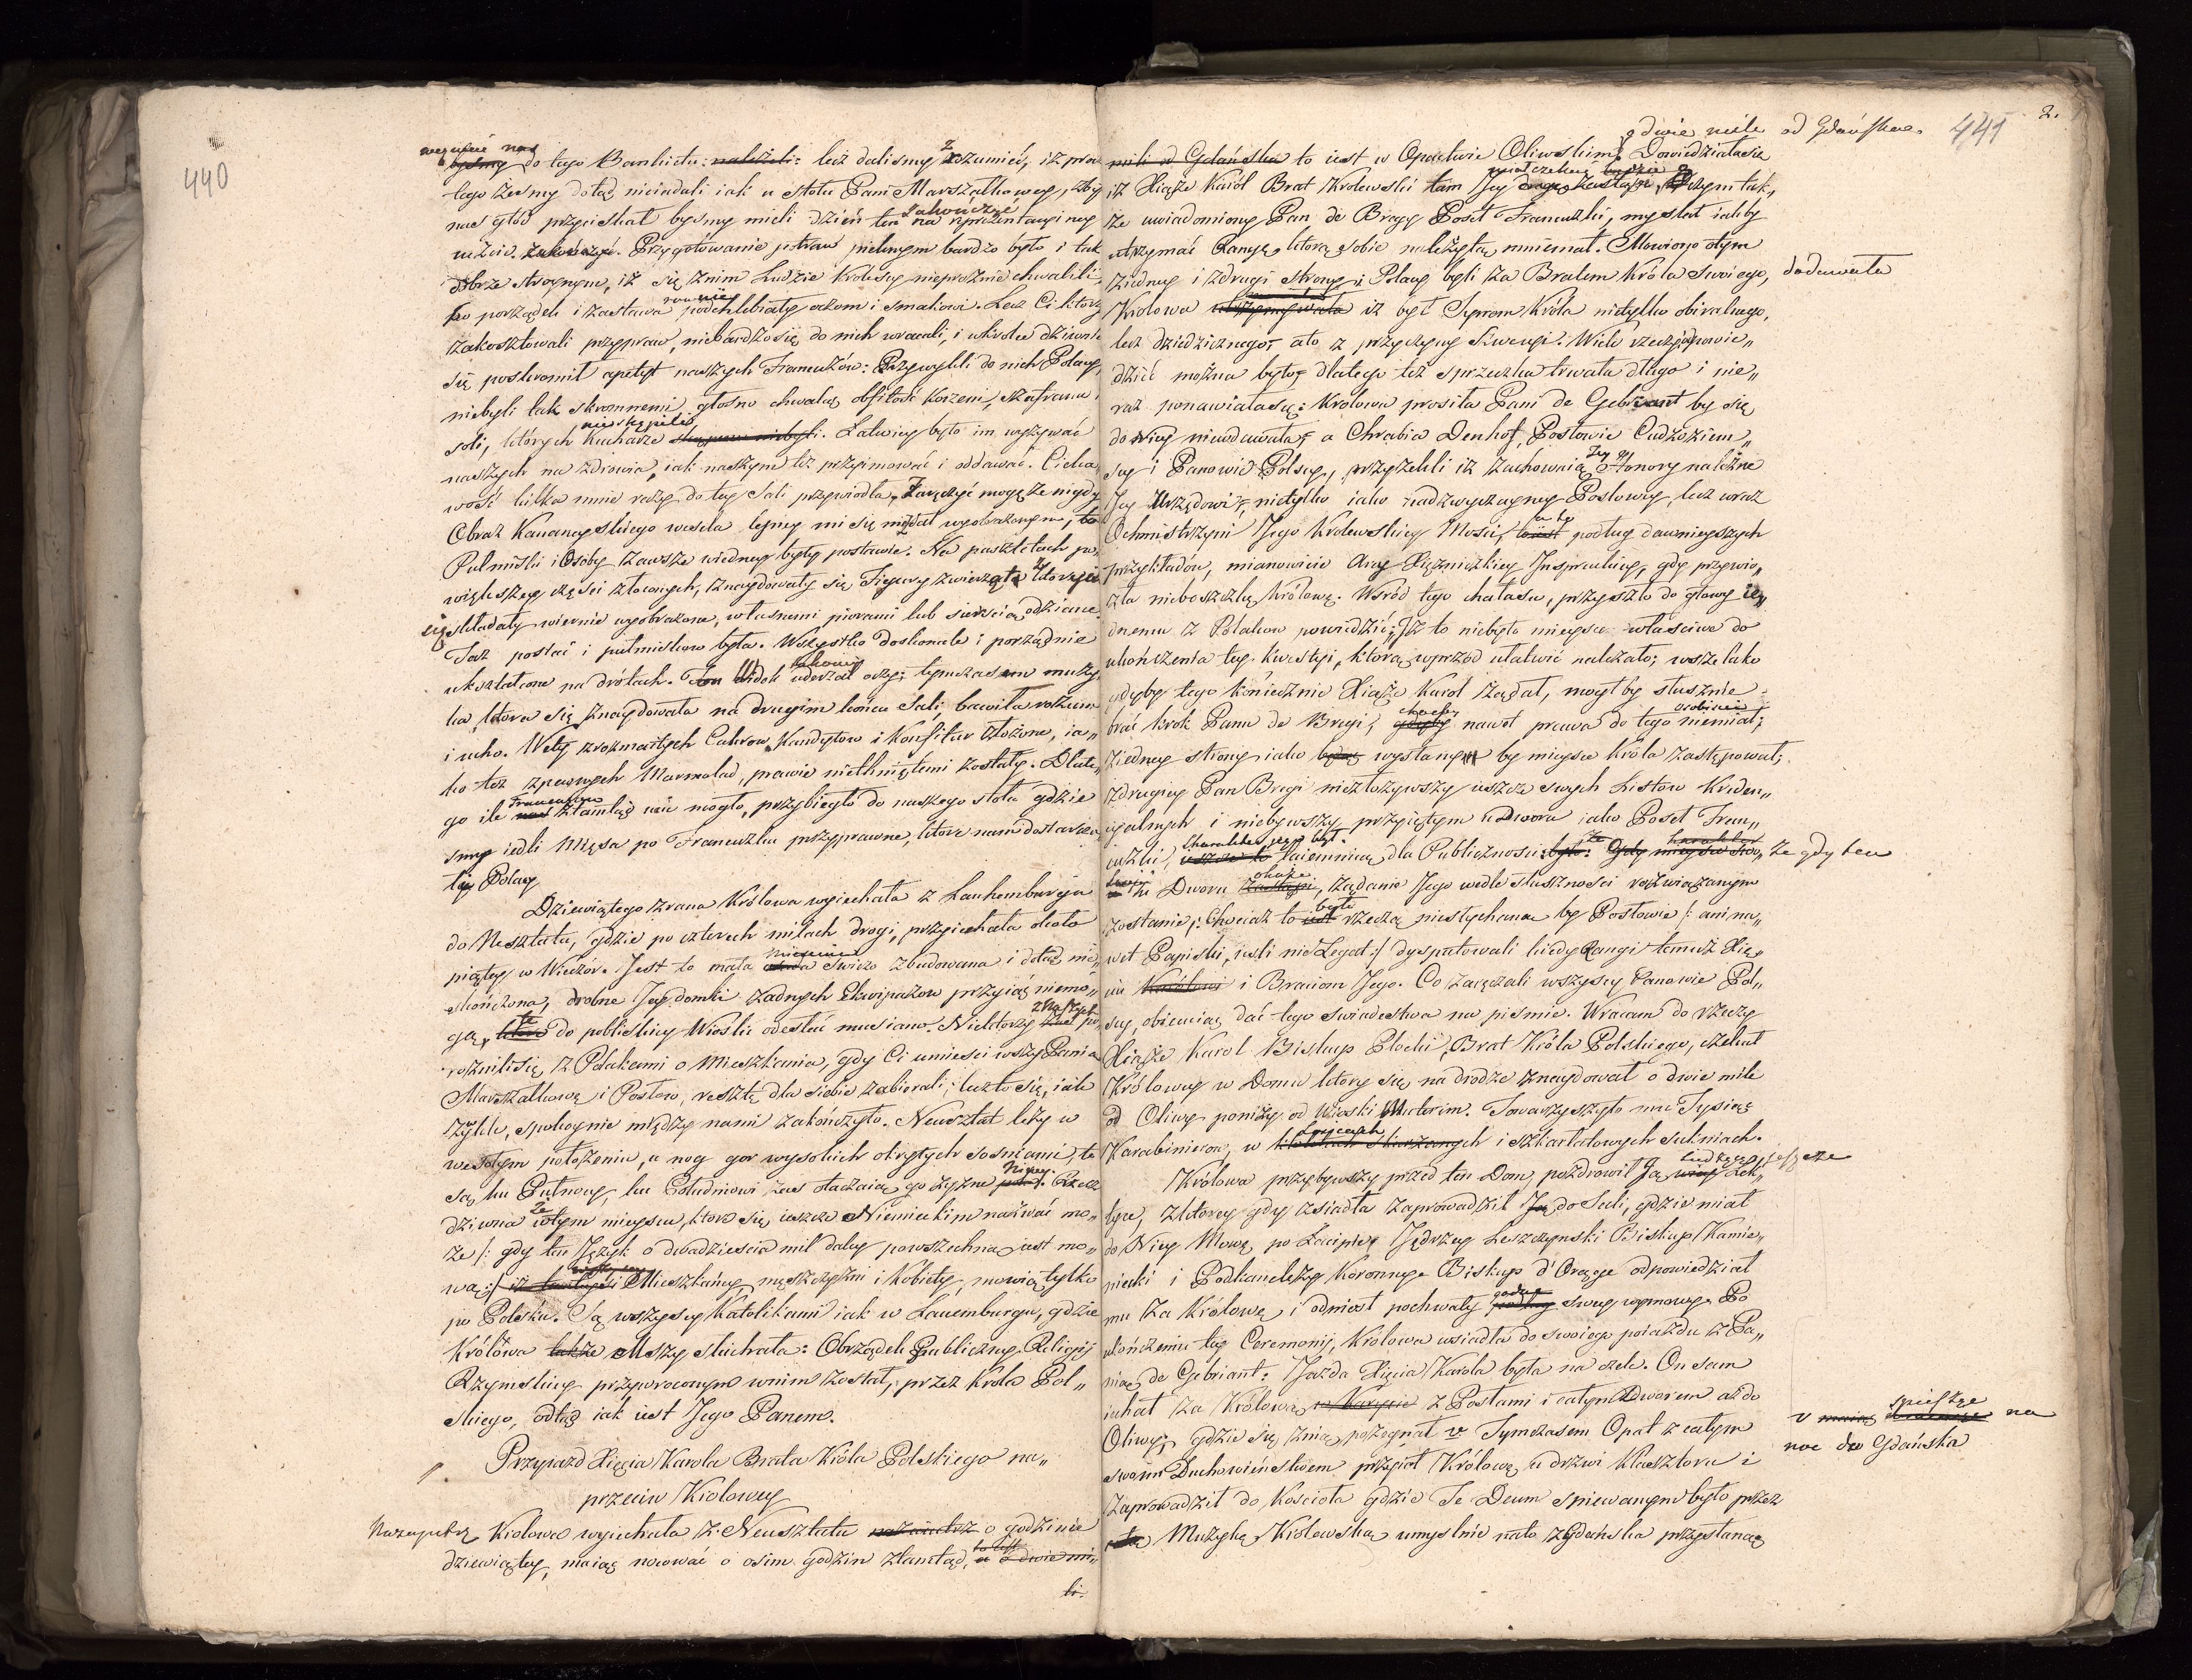 440
do tego Bankietu: należeli: lecz dalismy rozumieć, iż prócz
tego żesmy dotąd nieiadali iak u stołu Pani Marszałkowey, żeby
nas głód przyciskał bysmy mieli dzień ten na reprezentacyiney
uczcie zakończyć. Przygotówanie potraw pieknym bardzo było i tak
dobrze stroynym, iż się znim Ludzie Królowy nieprożnie chwalili
bo porządek i zastawa rownie podchlebiały oczom i smakowi. Lecz Ci ktorzy
zakosztowali przypraw, niebardzo się do nich wracali, i wkrotce dziwnie
się poskromił apetyt naszych Francuzów: Przywykli do nich Polacy,
niebyli tak skromnemi, głosno chwaląc obfitość korzeni, szafranu i
soli, których Kucharze nieskąpili. Łatwiey było im wyzywać
naszych na zdrowia, iak naszym też przyimować i oddawać. Cieka
wość kilka mnie razy do tey Sali przywiodła, Zaręczyć mogę że nigdy
Obraz Kananeyskiego wesela lepiey mi się niezdał wyobrażonym, bo
Pułmiski i Osoby zawsze wiedney były postawie. Na pasztetach po
większey częsci złoconych, znaydowały się Figury zwierząt z ktorych
się składały wiernie wyobrażone, własnemi piorami lub siercią odziane
Taż postać i pułmiskow była. Wszystko doskonale i porządnie
ukształcone na drótach. Ten Widok uderzał oczy; tymczasem muzy
ka, ktora się znaydowała na drugim końcu Sali, bawiła rozum
i ucho. Wety z rozmaitych Cukrow, Kandytow i Konfitur złożone, ia„
ko też z pewnych Marmolad, prawie nietkniętemi zostały. Dlate„
go ile Francuzow ztamtąd uiść mogło, przybiegło do naszego stołu gdzie
smy iedli Mięsa po Francuzku przyprawne, ktore nam dostarcza
li Polacy
Dziewiątego zrana Królowa wyiechała z Lauhemburga
do Nesztatu, gdzie po czterech milach drogi, przyiechała około
piątey w Wieczór. Jest to mała Miescina świeżo zbudowana i dotąd nie„
skończona, drobne Jey domki żadnych Ekwipażow przyiąć niemo„
gą, te do pobliskiey Wioski odesłać musiano. Niektorzy z Naszych po
rożnili się z Polakami o Mieszkania, gdy Ci umiesciwszy Panią
Marszałkową i Posłow, resztę dla siebie zabierali; lecz to się, iak
zwykle, spokoynie między nami zakończyło. Neusztat leży w
wesołym położeniu, u nog gor wysokich okrytych sosniami, te
są ku Pułnocy, ku Południowi zas otaczaią go żyzne Niwy. Rzecz
dziwna że wtym mieyscu, ktore się ieszcze Niemieckim nazwać mo„
że /: gdy ten Język o dwadziescia mil daley powszechną iest mo„
wą :/ wszyscy Mieszkańcy, męszczyzni i Kobiety, mowią tylko
po Polsku. Są wszyscy Katolikami iak w Lauemburgu, gdzie
Królowa także Mszy słuchała: Obrządek Publiczney Religij
Rzymskiey przywroconym wnim został, przez Krola Pol„
skiego, odtąd iak iest Jego Panem.
Przyiazd Xięcia Karola Brata Króla Polskiego na„
przeciw Krolowey
Nazaiutrz Krolowa wyiechała z Neusztatu nazaiutrz o godzinie
dziewiątey, maiąc nocować o osim godzin ztamtąd, to iest o dwie mi„
li.
2.
441
o dwie mile od Gdańska.
mili od Gdańska to iest w Opactwie Oliwskim. Dowiedziała się
iż Xiąże Karól Brat Krolewski tam Jey
że uwiadomiony Pan de Bregy Poseł Francuzki, myslał iakby
otrzymać Rangę, ktorą sobie należytą mniemał. Mowiono otym
ziedney i zdrugi strony i Polacy byli za Bratem Króla swoiego, dodawała
Krolowa utrzymywała iż był Synem Króla nietylko obiralnego,
lecz dziedzicznego, ato z przyczyny Szwecyi. Wiele rzeczy odpowie„
dzieć można było, dlatego też sprzeczka trwała długo i nie„
raz ponawiała się: Krolowa prosiła Pani de Gebriant by się
do Niey nieudawała, a Chrabia Denhof, Posłowie Cudzoziem„
scy i Panowie Polscy, przyrzekli iż zachowaią Jey Honory należne
Jey Urzędowi, nietylko iako nadzwyczayney Posłowey, lecz oraz
Ochmistrzyni Jego Krolewskiey Mosci, a to podług dawnieyszych
przykładów, mianowicie Arcy Xiężniczkiey Jnspruckiey, gdy przywio„
zła nieboszczkę Królową. Wsród tego hałasu, przyszło do głowy ie„
dnemu z Polakow powiedzieć; Iż to niebyło mieysce właściwe do
ukończenia tey kwestyi, ktorą wprzód ułatwić należało; wszelako
gdyby tego koniecznie Xiąże Karol żądał, mogł by słusznie
brać krok Panu de Bregi; choćby nawet prawa do tego osobiscie niemiał;
ziedney strony iako wysłany by mieysce króla zastępował;
zdrugiey Pan Bregi niezłożywszy ieszcze swych Listow Kreden„
cyalnych i niebywszy przyiętym u Dworu iako Poseł Fran„
cuzki, charakter iego był taiemnicą dla Publicznosci: że gdy ten
Dworu okaże, żądanie Jego wedle słuszności rozwiązanym
zostanie; Chociaż to było rzeczą niesłychaną by Posłowie /: ani na„
wet Papiski, iesli nie Legat :/ dysputowali kiedy Rangi temuż Xię„
ciu i Braciom Jego. Co zaręczali wszyscy Panowie Pol„
scy, obiecuiąc dać tego swiadectwa na pismie. Wracam do rzeczy
Xiąże Karol Biskup Płocki, Brat Króla Polskiego, czekał
Królowey w Domu ktory się na drodze znaydował o dwie mile
od Oliwy poniżey od Wioski. Towarzyszyło mu Tysiąc
Karabinierow, w i szkarłatowych sukniach.
Królowa przybywszy przed ten Dom, pozdrowił Ją ieszcze Lek„
tyce, zktorey gdy zsiadła zaprowadził Ją do Sali, gdzie miał
do Niey Mowę po Łacinie Jędrzey Leszczynski Biskup Kamie„
niecki i Podkanclerzy Koronny. Biskup d'Orange odpowiedział
mu za Królową i odniosł pochwały godne swey wymowy. Po
ukończeniu tey Ceremonij, Krolowa wsiadła do swoiego poiazdu z Pa„
nią de Gebriant: Jazda Xięcia Karola była na czele. On sam
iechał za Królową w Karecie z Posłami i całym Dworem aż do
Oliwy, gdzie się znią pożegnał v Tymczasem Opat z całym
swoim Duchowieństwem przyiął Królową u drzwi Klasztoru i
zaprowadził do Koscioła gdzie Te Deum spiewanym było przez
Muzykę Krolewską umyslnie nato z Gdańska przysłaną
v spiesząc na
noc do Gdańska